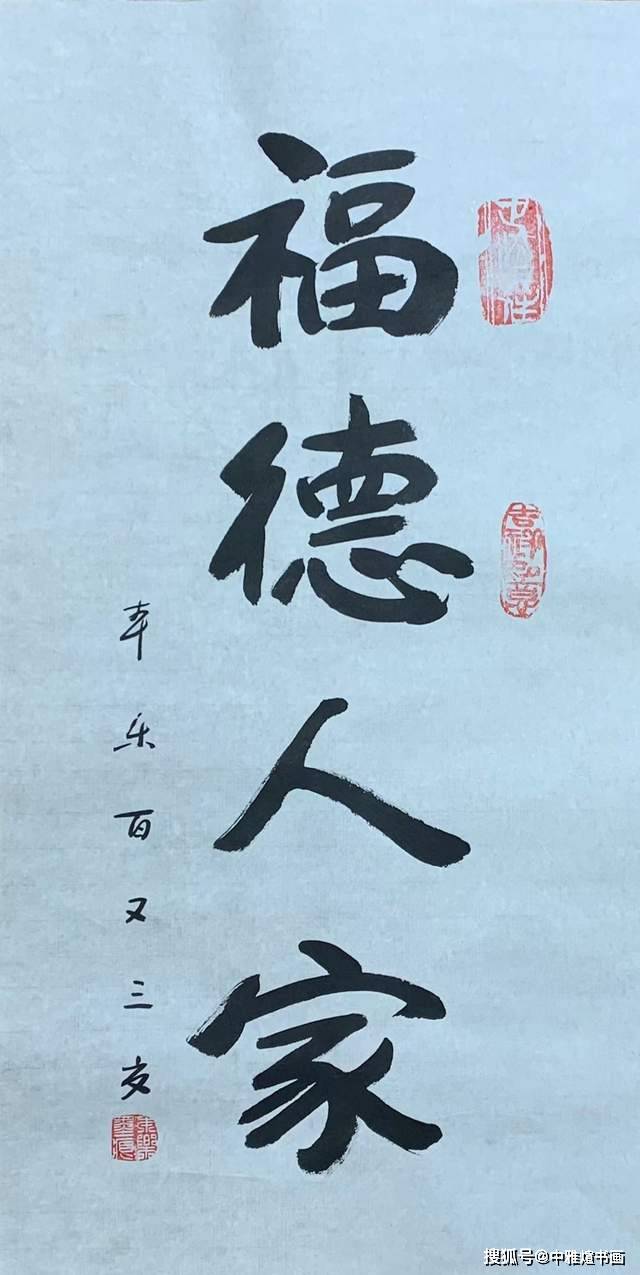 福德人家
吉祥如意
乐百又三
搜狐号@中雅煊书画